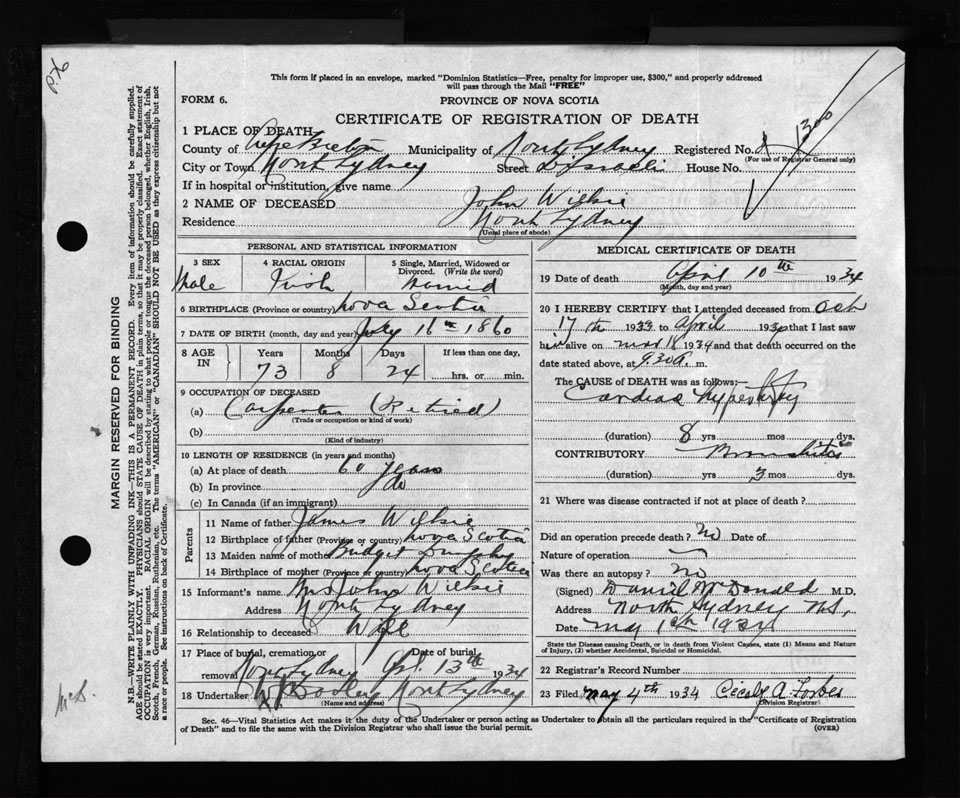 This form if placed in an envelope, marked "Dominion Statistics—Free, penalty for improper use, $300," and properly addressed
will pass through the Mail "FREE"
FORM 6.
PROVINCE OF NOVA SCOTIA
CERTIFICATE OF REGISTRATION OF DEATH
1 PLACE OF DEATH
County of Cape Breton Municipality of North Sydney Registered No.
(For use of Registrar General only)
City or Town North Sydney Street Disraeli House No.
If in hospital or institution, give name
2 NAME OF DECEASED John Wilkie
Residence North Sydney
(Usual place of abode)
PERSONAL AND STATISTICAL INFORMATION
3 SEX 4 RACIAL ORIGIN 5 Single, Married, Widowed or Divorced. (Write the word)
Male Irish Married
6 BIRTHPLACE (Province or country) Nova Scotia
7 DATE OF BIRTH (month, day and year) July 16th 1860
8 AGE IN Years Months Days If less than one day,
73 8 24 hrs. or min.
9 OCCUPATION OF DECEASED
(a) Carpenter (Retired)
(Trade or occupation or kind of work)
(b)
(Kind of industry)
10 LENGTH OF RESIDENCE (in years and months)
(a) At place of death 60 years
(b) In province do
(c) In Canada (if an immigrant)
Parents
11 Name of father James Wilkie
12 Birthplace of father (Province or country) Nova Scotia
13 Maiden name of mother Bridget Dunphy
14 Birthplace of mother (Province or country) Nova Scotia
15 Informant's name Mrs John Wilkie
Address North Sydney
16 Relationship to deceased Wife
17 Place of burial, cremation or removal Date of burial
North Sydney Apr. 13th 1934
18 Undertaker Dooley North Sydney
(Name and address)
MEDICAL CERTIFICATE OF DEATH
19 Date of death April 10th 1934
(Month, day and year)
20 I HEREBY CERTIFY that I attended deceased from Oct
17th 1933 to April 1934 that I last saw
him alive on Mar 18 1934 and that death occurred on the
date stated above, at 9.30 A. m.
The CAUSE OF DEATH was as follows:—
Cardiac hypertrophy
(duration) 8 yrs mos dys.
CONTRIBUTORY Bronchitis
(duration) yrs 3 mos dys.
21 Where was disease contracted if not at place of death?
Did an operation precede death? No Date of
Nature of operation
Was there an autopsy? No
(Signed) Daniel McDonald M.D.
Address North Sydney N.S.
Date May 1st 1934
State the Disease causing Death, or in death from Violent Causes, state (1) Means and Nature of Injury, (2) whether Accidental, Suicidal or Homicidal.
22 Registrar's Record Number
23 Filed May 4th 1934 Cecily A. Forbes
(Division Registrar)
Sec. 46—Vital Statistics Act makes it the duty of the Undertaker or person acting as Undertaker to obtain all the particulars required in the "Certificate of Registration
of Death" and to file the same with the Division Registrar who shall issue the burial permit.
(OVER)
MARGIN RESERVED FOR BINDING
N.B.—WRITE PLAINLY WITH UNFADING INK—THIS IS A PERMANENT RECORD. Every item of information should be carefully supplied.
AGE should be stated EXACTLY. PHYSICIANS should STATE CAUSE OF DEATH in plain terms, so that it may be properly classified. Exact statement of
OCCUPATION is very important. RACIAL ORIGIN will be described by stating to what people or tongue the deceased person belonged, whether English, Irish,
Scotch, French, German, Russian, Ruthenian, etc. The terms "AMERICAN" or "CANADIAN" SHOULD NOT BE USED as they express citizenship but not
a race or people. See instructions on back of Certificate.